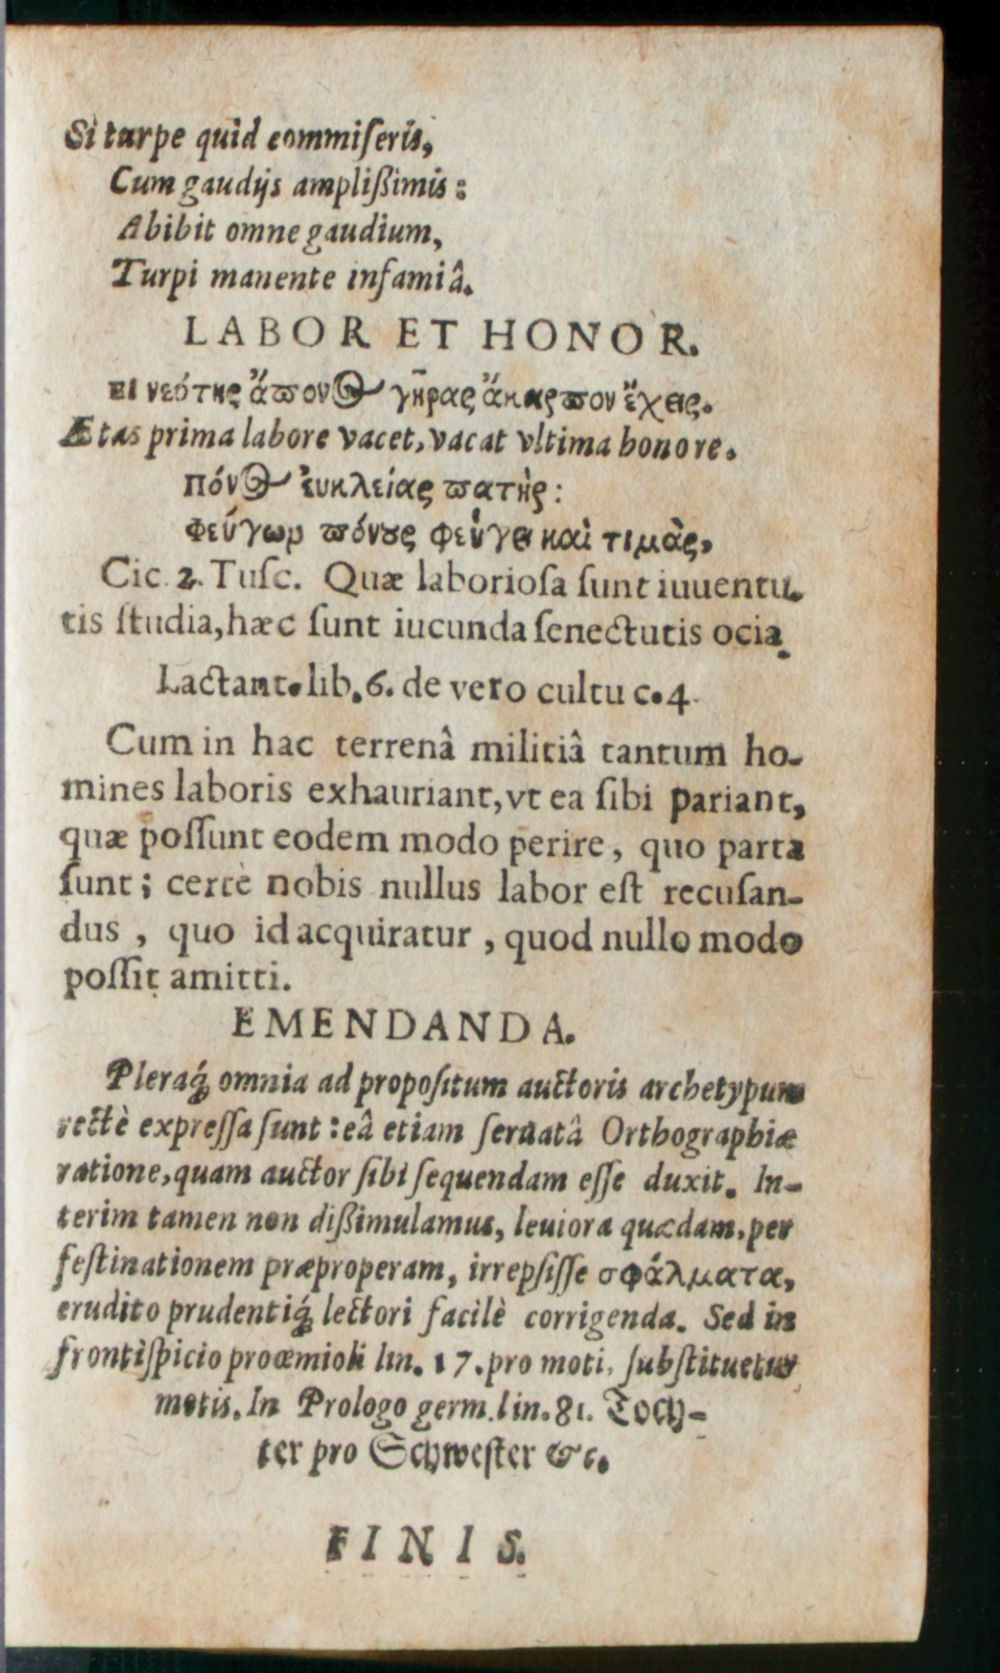 Si turpe quid commiſeris,
Cum gaudijs amplißimis:
Abibit omne gaudium,
Turpi manente infamiâ.
LABOR ET HONOR.
Ει νεότης ἄϖονος γῆρας ἄκαρϖον ἔχεις.
Ætas prima labore vacet, vacat vltima honore.
Πόνος ἐυκλείας ϖατὴρ:
Φεύγων ϖόνȣς φεύγει καὶ τιμὰς,
Cic. 2. Tuſc. Quæ laborioſa ſunt iuuentu-
tis ſtudia, hæc ſunt iucunda ſenectutis ocia.
Lactant. lib. 6. de vero cultu c. 4.
Cum in hac terrenâ militiâ tantum ho-
mines laboris exhauriant, vt ea ſibi pariant,
quæ poſſunt eodem modo perire, quo parta
ſunt; certè nobis nullus labor eſt recuſan-
dus, quo id acquiratur, quod nullo modo
poſſit amitti.
EMENDANDA.
Pleraq́; omnia ad propoſitum auctoris archetypum
rectè expreſſa ſunt: eâ etiam ſeruatâ Orthographiæ
ratione, quam auctor ſibi ſequendam eſſe duxit. In-
terim tamen non dißimulamus, leuiora quædam, per
feſtinationem præproperam, irrepſiſſe σφάλματα,
erudito prudentiq́; lectori facilè corrigenda. Sed in
frontiſpicio proœmioli lin. 17. pro moti, ſubſtituetur
motis. In Prologo germ. lin. 81. Toch-
ter pro Schweſter &c.
FINIS.